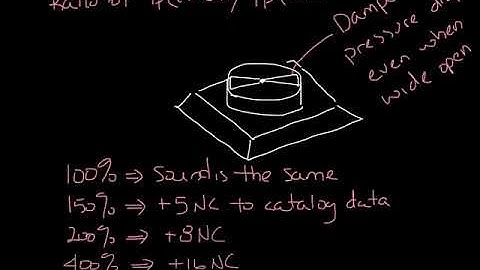 Ratio of
Damper
pressure drop
even when
wide open
100% ⇒ Sound is the same
150% ⇒ +5 NC to catalog data
200% ⇒ +8 NC
400% ⇒ +16 NC